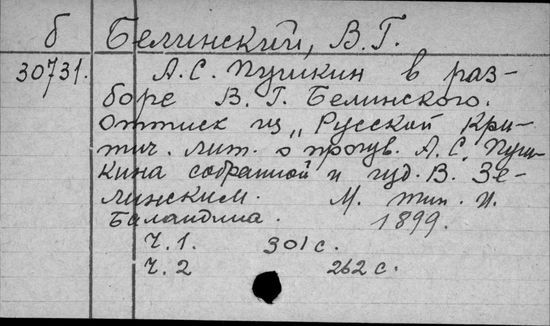 б Белинский, В.Г.
30731. А.С. Пушкин в раз-
боре В.Г. Белинского.
Оттиск из „Русской Кри-
тич. лит. о произв. А.С. Пуш-
кина собранной и изд. В. Зе-
линским. М. тип. И.
Баландина. 1899.
Ч.1. 301 с.
Ч.2 262 с.